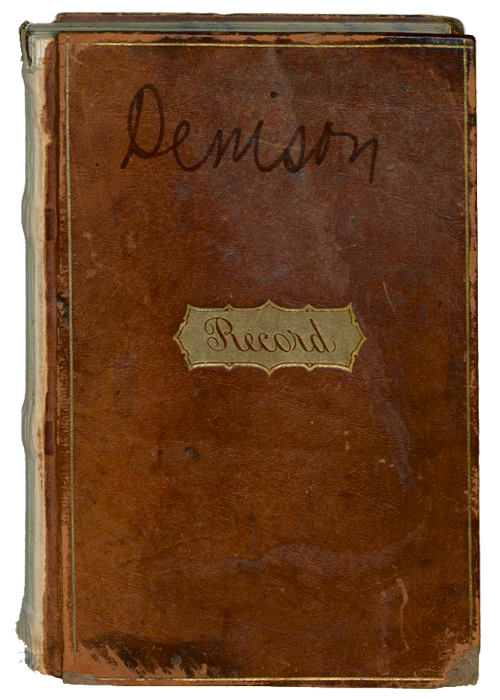 Denison
Record